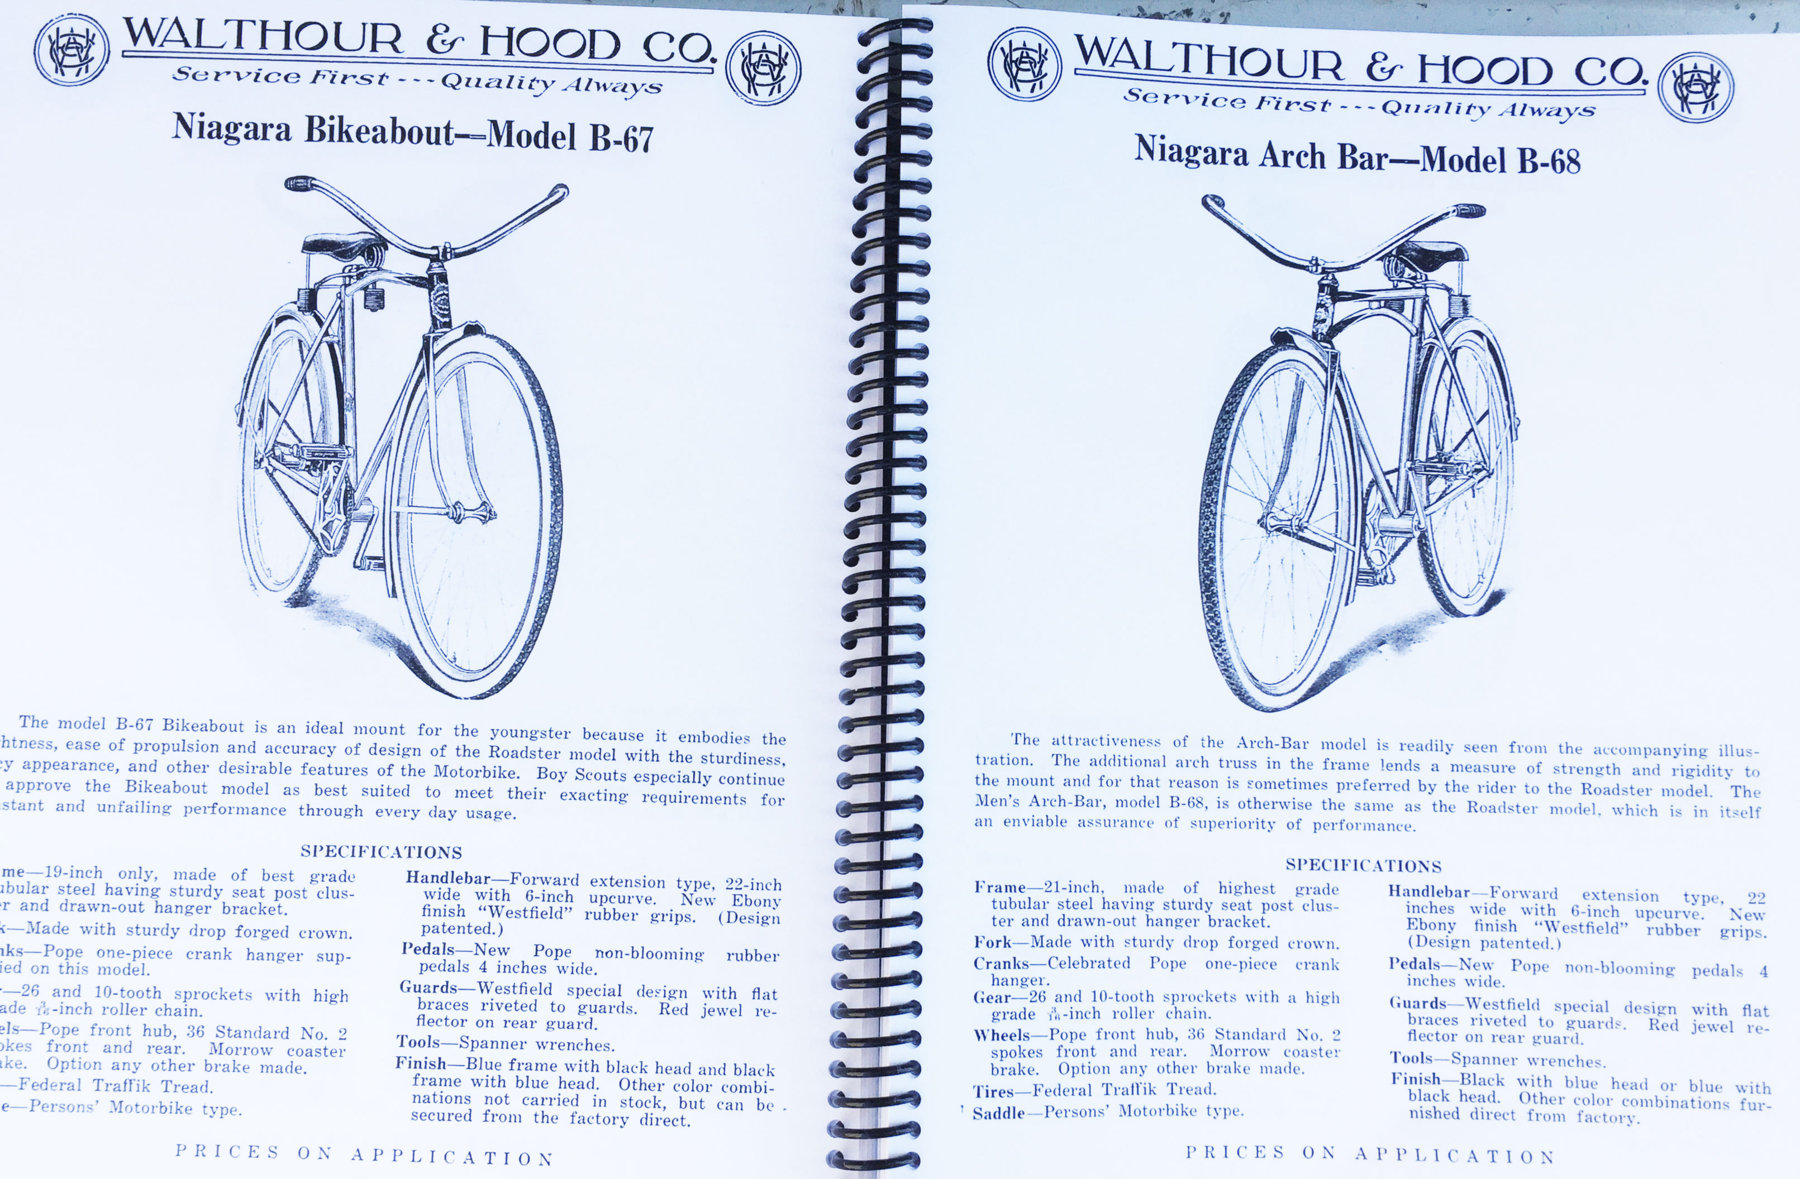 WALTHOUR & HOOD CO.
Service First --- Quality Always
Niagara Bikeabout—Model B-67
The model B-67 Bikeabout is an ideal mount for the youngster because it embodies the
ease of propulsion and accuracy of design of the Roadster model with the sturdiness,
appearance, and other desirable features of the Motorbike. Boy Scouts especially continue
approve the Bikeabout model as best suited to meet their exacting requirements for
and unfailing performance through every day usage.
SPECIFICATIONS
—19-inch only, made of best grade
steel having sturdy seat post clus-
and drawn-out hanger bracket.
—Made with sturdy drop forged crown.
—Pope one-piece crank hanger sup-
on this model.
—26 and 10-tooth sprockets with high
-inch roller chain.
—Pope front hub, 36 Standard No. 2
front and rear. Morrow coaster
Option any other brake made.
—Federal Traffik Tread.
—Persons' Motorbike type.
Handlebar—Forward extension type, 22-inch
wide with 6-inch upcurve. New Ebony
finish "Westfield" rubber grips. (Design
patented.)
Pedals—New Pope non-blooming rubber
pedals 4 inches wide.
Guards—Westfield special design with flat
braces riveted to guards. Red jewel re-
flector on rear guard.
Tools—Spanner wrenches.
Finish—Blue frame with black head and black
frame with blue head. Other color combi-
nations not carried in stock, but can be
secured from the factory direct.
PRICES ON APPLICATION
WALTHOUR & HOOD CO.
Service First --- Quality Always
Niagara Arch Bar—Model B-68
The attractiveness of the Arch-Bar model is readily seen from the accompanying illus-
tration. The additional arch truss in the frame lends a measure of strength and rigidity to
the mount and for that reason is sometimes preferred by the rider to the Roadster model. The
Men's Arch-Bar, model B-68, is otherwise the same as the Roadster model, which is in itself
an enviable assurance of superiority of performance.
SPECIFICATIONS
Frame—21-inch, made of highest grade
tubular steel having sturdy seat post clus-
ter and drawn-out hanger bracket.
Fork—Made with sturdy drop forged crown.
Cranks—Celebrated Pope one-piece crank
hanger.
Gear—26 and 10-tooth sprockets with a high
grade -inch roller chain.
Wheels—Pope front hub, 36 Standard No. 2
spokes front and rear. Morrow coaster
brake. Option any other brake made.
Tires—Federal Traffik Tread.
Saddle—Persons' Motorbike type.
Handlebar—Forward extension type, 22
inches wide with 6-inch upcurve. New
Ebony finish "Westfield" rubber grips.
(Design patented.)
Pedals—New Pope non-blooming pedals 4
inches wide.
Guards—Westfield special design with flat
braces riveted to guards. Red jewel re-
flector on rear guard.
Tools—Spanner wrenches.
Finish—Black with blue head or blue with
black head. Other color combinations fur-
nished direct from factory.
PRICES ON APPLICATION